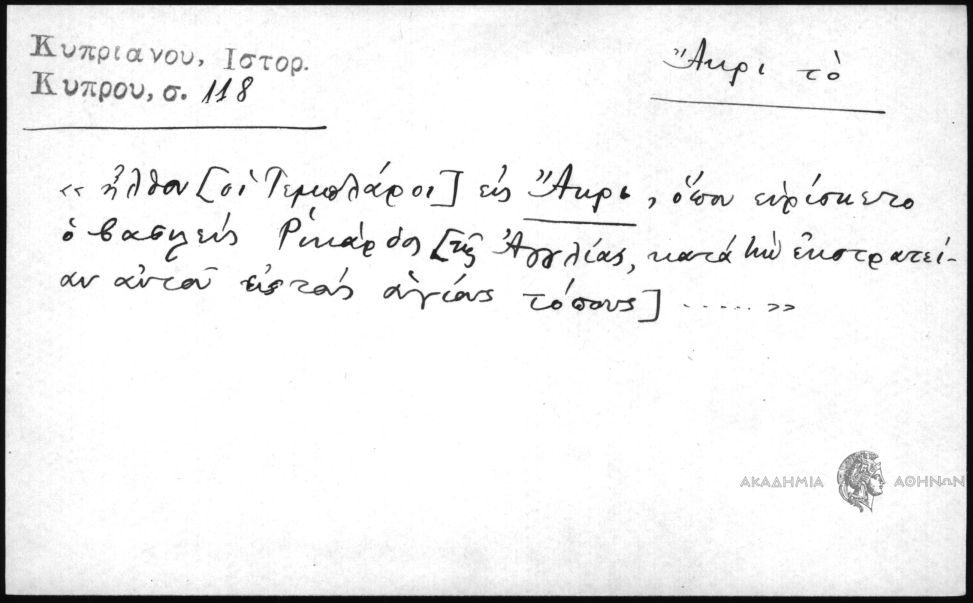 Κυπριανου, Ιστορ.
Κυπρου, σ. 118
Ἄκρι τὸ
« ἦλθον [οἱ Τεμπλάροι] εἰς Ἄκρι, ὅπου εὑρίσκετο
ὁ βασιλεὺς Ρικάρδος [τῆς Ἀγγλίας, κατά τὴν ἐκστρατεί-
αν αὐτοῦ εἰς τούς ἁγίους τόπους] ...... »
ΑΚΑΔΗΜΙΑ ΑΘΗΝΩΝ